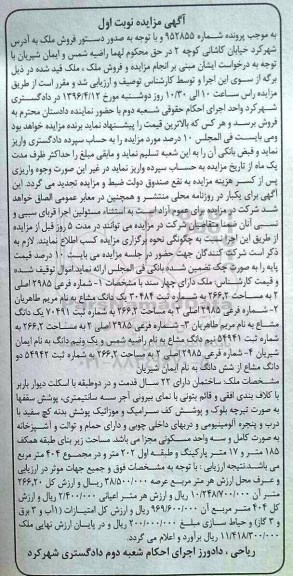 آگهی مزایده نوبت اول
به موجب پرونده شماره ۹۵۲۸۵۵ و با توجه به صدور دستور فروش ملک به آدرس
شهرکرد خیابان کاشانی کوچه ۲ در حق محکوم لهما راضیه شمس و ایمان شیریان با
توجه به درخواست ایشان مبنی بر انجام مزایده و فروش ملک ، ملک قید شده در ذیل
برگه از سوی این اجرا و توسط کارشناس توصیف و ارزیابی شد و مقرر است از طریق
مزایده راس ساعت ۱۰ الی ۱۰/۳۰ روز دوشنبه مورخ ۱۳۹۶/۴/۱۲ در دادگستری
شهرکرد واحد اجرای احکام حقوقی شعبه دوم با حضور نماینده دادستان محترم به
فروش برسد و هر کس که بالاترین قیمت را پیشنهاد نماید برنده مزایده خواهد بود
ومی بایست فی المجلس ۱۰ درصد مورد مزایده را به حساب سپرده دادگستری واریز
نماید و فیش بانکی آن را به این شعبه تسلیم نماید و مابقی مبلغ را حداکثر ظرف مدت
یک ماه از تاریخ مزایده به حساب سپرده واریز نماید در غیر این صورت وجوه واریزی
پس از کسر هزینه مزایده به نفع صندوق دولت ضبط و مزایده تجدید می گردد. این
آگهی برای یکبار در روزنامه محلی منتشر و همچنین در معابر عمومی الصاق خواهد
شد شرکت در مزایده برای عموم آزاد است به استثناء مسئولین اجرا قربای سببی و
نسبی آنان ضمنا متقاضیان شرکت در مزایده می توانند در مدت ۵ روز قبل از مزایده
از طریق این اجرا نسبت به چگونگی نحوه برگزاری مزایده کسب اطلاع نمایند. لازم به
ذکر است شرکت کنندگان جهت حضور در جلسه مزایده می بایست ۱۰ درصد قیمت
پایه را به صورت چک تضمین شده بانکی فی المجلس ارائه نماید.اموال توقیف شده
و قیمت کارشناس: ملک دارای چهار سند با مشخصات ۱- شماره فرعی ۲۹۸۵ اصلی
۲ به مساحت ۲۶۶,۲ به شماره ثبت ۳۰۴۸۴ یک دانگ مشاع به نام مریم طاهریان
۲- شماره فرعی ۲۹۸۵ اصلی ۲ به مساحت ۲۶۶,۲ به شماره ثبت ۷۰۴۹۱ یک دانگ
مشاع به نام مریم طاهریان ۳- شماره فرعی ۲۹۸۵ اصلی ۲ به مساحت ۲۶۶,۲ به
شماره ثبت ۵۴۹۴۱ نیم دانگ مشاع به نام راضیه شمس و یک ونیم دانگ به نام ایمان
شیریان ۴- شماره فرعی ۲۹۸۵ اصلی ۲ به مساحت ۲۶۶,۲ به شماره ثبت ۵۴۹۴۲ دو
دانگ مشاع از شش دانگ به نام ایمان شیریان
مشخصات ملک: ساختمان دارای ۲۲ سال قدمت و در دوطبقه با اسکلت دیوار باربر
با کلاف بندی افقی و قائم بتونی با نمای بیرونی آجر سه سانتیمتری، پوشش سقفها
به صورت تیرچه بلوک و پوشش کف سرامیک و موزائیک پوشش بدنه کچ سفید با
درب و پنجره آلومینیومی و دربهای داخلی چوبی و دارای حمام و توالت و آشپزخانه
به صورت کامل و سه واحد مسکونی مجزا می باشد. مساحت زیر بنای طبقه همکف
۱۸۵ متر و ۱۷ متر پارکینگ و طبقه اول ۲۰۲ متر و در مجموع ۴۰۴ متر مربع
می باشد.نتیجه ارزیابی : با توجه به مشخصات فوق و جمیع جهات موثر در ارزیابی
و عرف محل ارزش هر متر مربع عرصه ۳۸/۵۰۰/۰۰۰ ریال و ارزش کل ۲۶۶,۲۰
متر آن ۱۰/۲۴۸/۷۰۰/۰۰۰ ریال و ارزش هر متر اعیانی ۲/۴۰۰/۰۰۰ ریال و ارزش
کل ۴۰۴ متر مربع آن ۹۶۹/۶۰۰/۰۰۰ ریال و ارزش کل امتیازات (۱آب و ۳ برق
و ۳ گاز) و حیاط سازی مبلغ ۲۰۰/۰۰۰/۰۰۰ ریال و در پایان ارزش نهایی ملک
۱۱/۴۱۸/۳۰۰/۰۰۰ ریال برآورد و اعلام می گردد.
ریاحی ، دادورز اجرای احکام شعبه دوم دادگستری شهرکرد